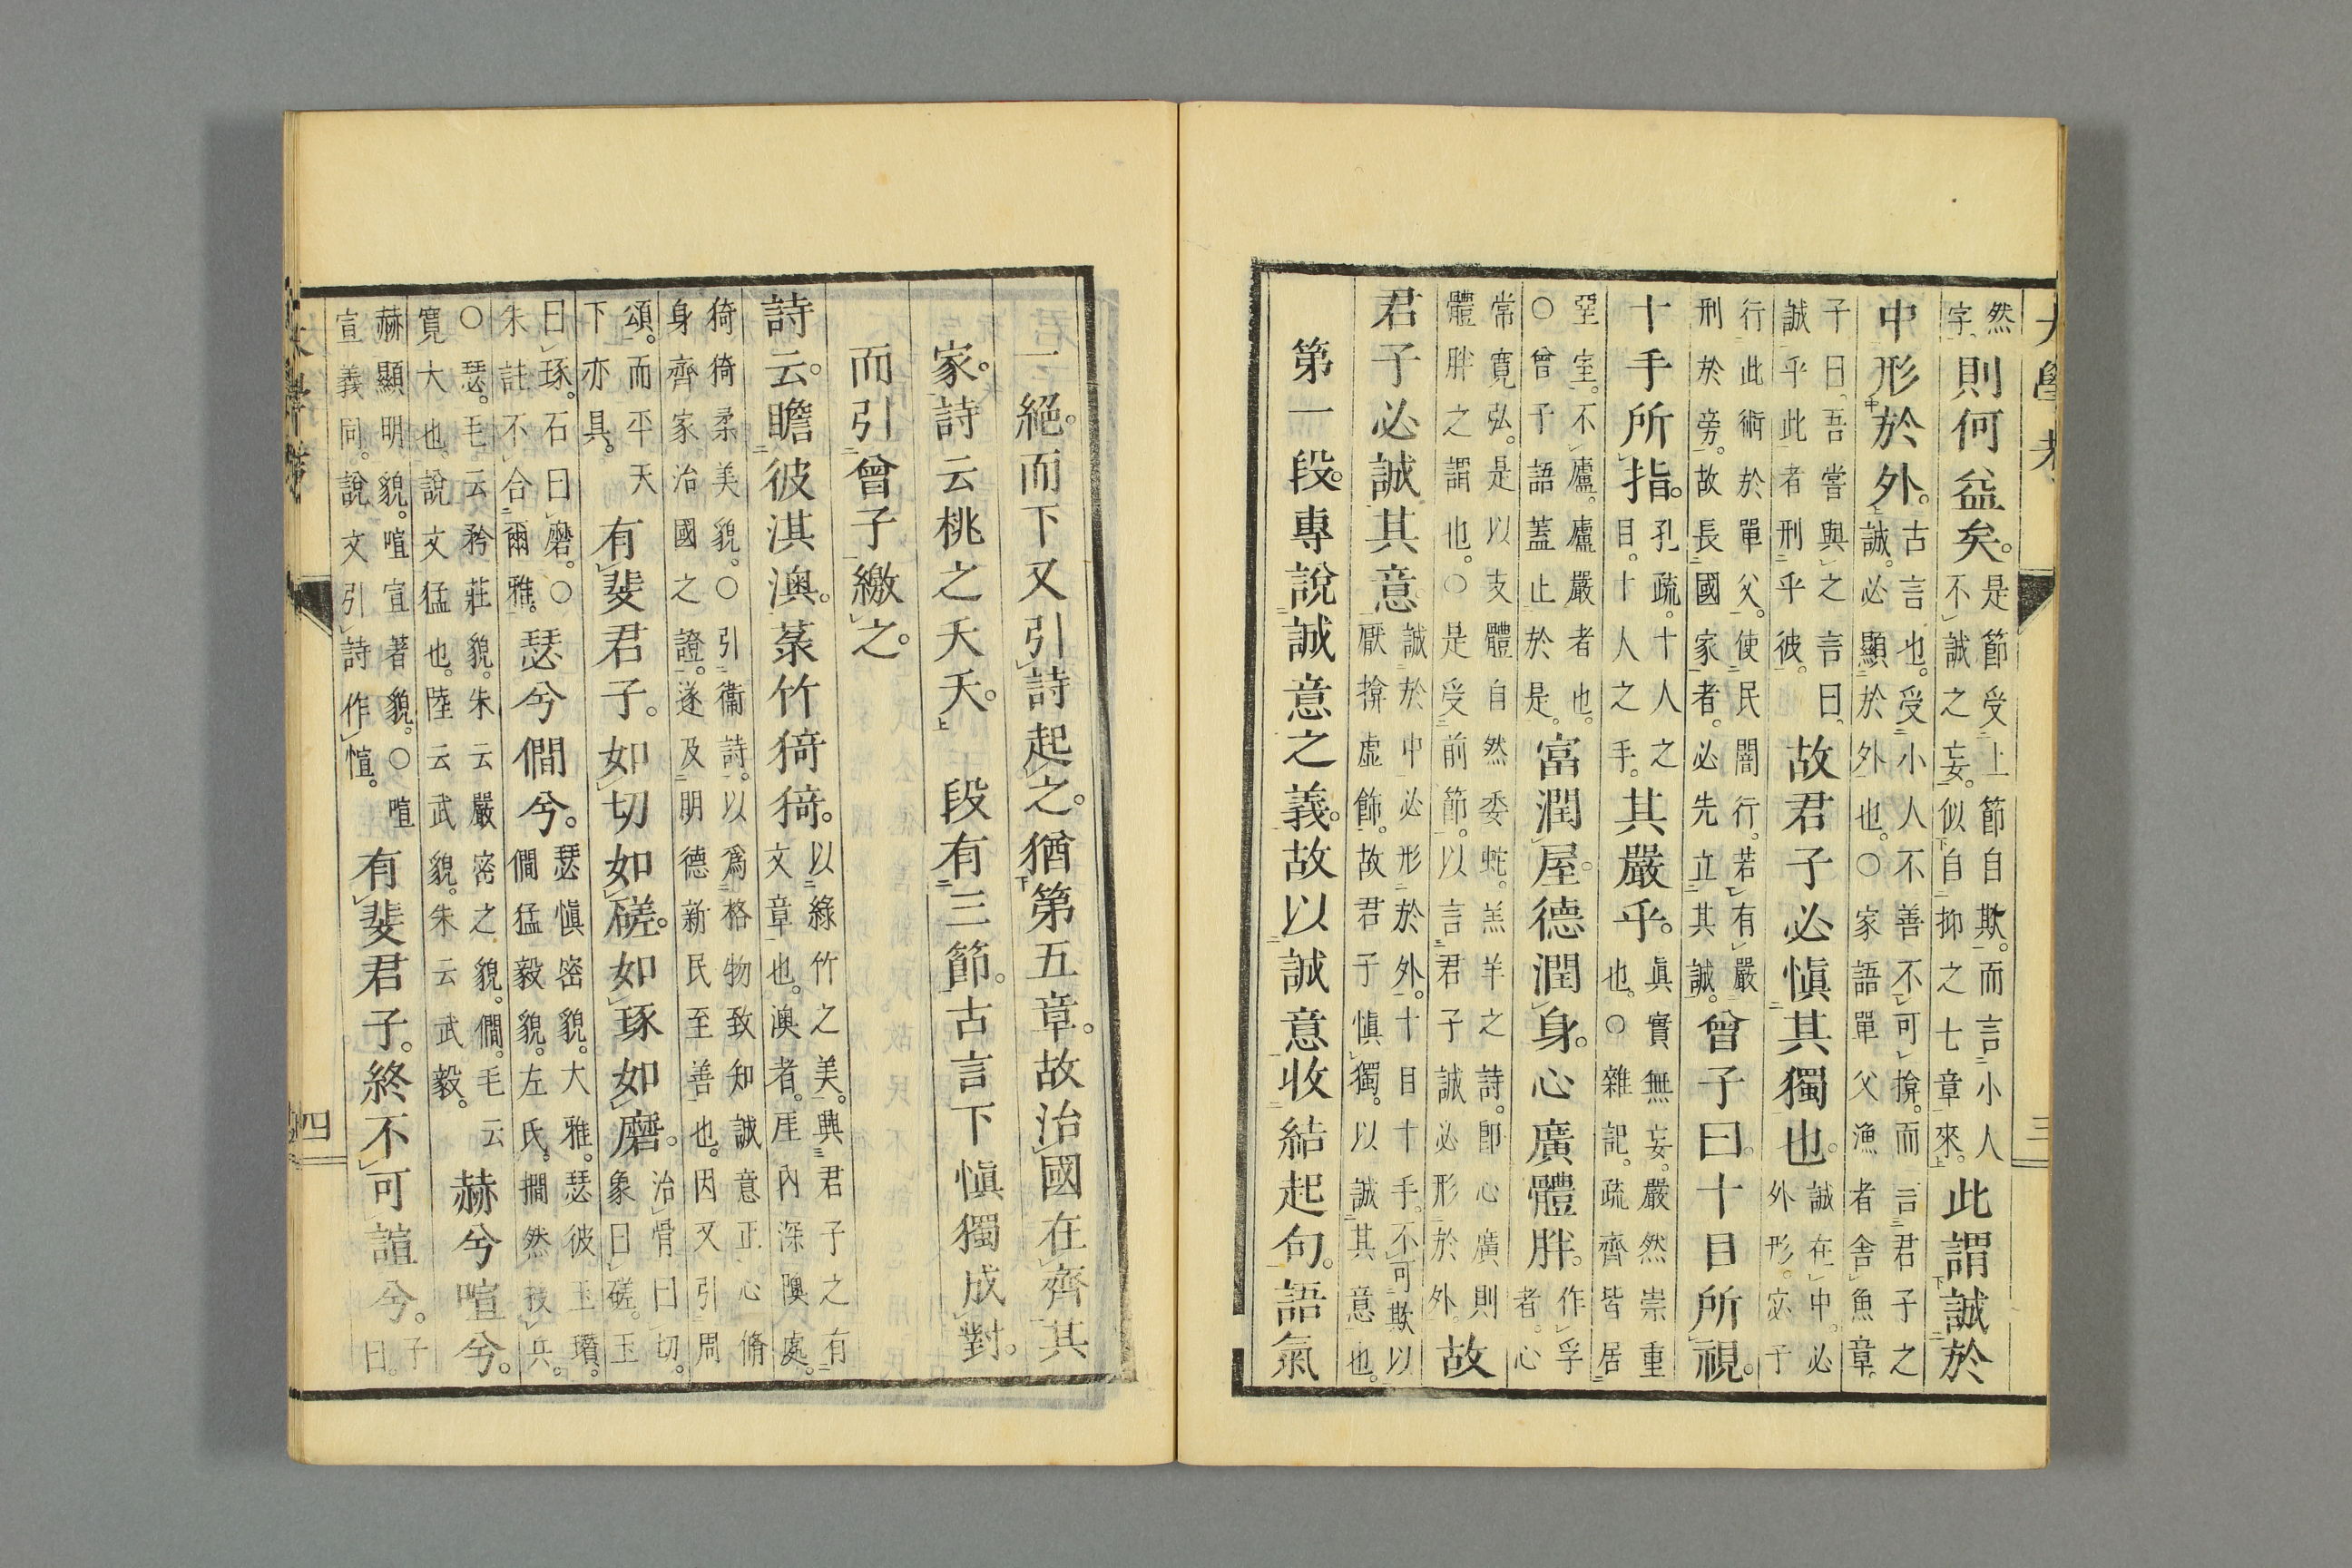 大學考
三
然
字。
則何益矣。
是節受上節自欺。而言小人
不誠之妄。似自抑之七章來。
此謂誠於
中形於外。
古言也。受小人不善不可揜。而言君子之
誠。必顯於外也。〇家語單父漁者舍魚章。
子曰、吾嘗與之言曰、
誠乎此者刑乎彼。
故君子必愼其獨也。
誠在中。必
外形。宓子
行此術於單父。使民闇行。若有嚴
刑於旁。故長國家者。必先立其誠。
曾子曰。十目所視。
十手所指。
孔疏。十人之
目。十人之手。
其嚴乎。
眞實無妄。嚴然崇重
也。〇雜記。疏齊皆居
堊室。不廬。廬嚴者也。
〇曾子語蓋止於是。
富潤屋。德潤身。心廣體胖。
作孚
者。心
常寬弘。是以支體自然委蛇。羔羊之詩。卽心廣則
體胖之謂也。〇是受前節。以言君子誠必形於外。
故
君子必誠其意
誠於中必形於外。十目十手。不可欺以
厭揜虛飾。故君子愼獨。以誠其意也。
第一段。專說誠意之義。故以誠意收結起句。語氣
一絕。而下又引詩起之。猶第五章。故治國在齊其
家。詩云桃之夭夭。
段有三節。古言下愼獨成對。
而引曾子繳之。
詩云。瞻彼淇澳。菉竹猗猗。
以綠竹之美。興君子之有
文章也。澳者。厓內深隩處。
猗猗柔美貌。〇引衞詩。以爲格物致知誠意正心脩
身齊家治國之證。遂及明德新民至善也。因又引周
頌。而平天
下亦具。
有斐君子。如切如磋。如琢如磨。
治骨曰切。
象曰磋。玉
曰琢。石曰磨。〇
朱註不合爾雅。
瑟兮僩兮。
瑟愼密貌。大雅。瑟彼玉瓚。
僩猛毅貌。左氏。撊然授兵。
〇瑟。毛云矜莊貌。朱云嚴密之貌。僩。毛云
寬大也。說文猛也。陸云武貌。朱云武毅。
赫兮喧兮。
赫顯明貌。喧宣著貌。〇喧
宣義同。說文引詩作愃。
有斐君子。終不可諠兮。
子
曰。
四